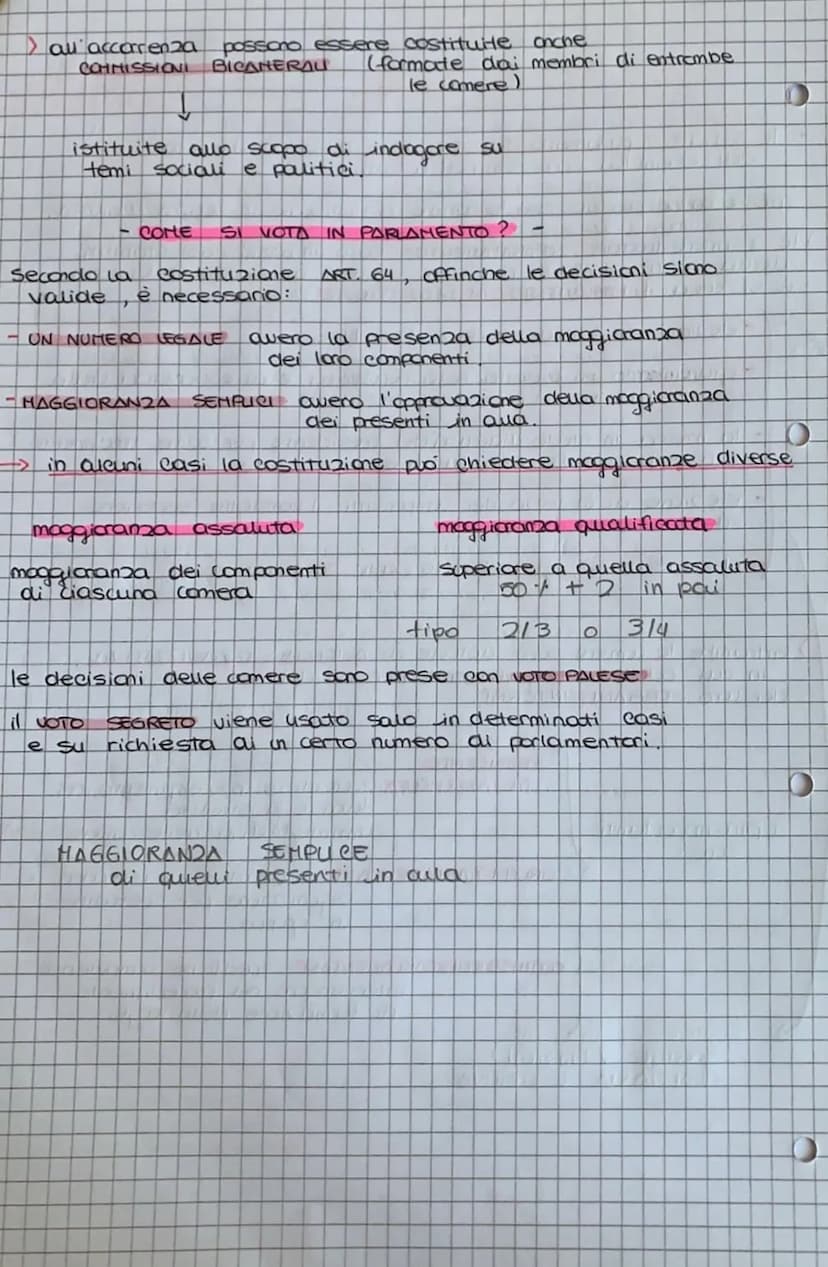 > all'accorrenza possono essere costituite anche
COMMISSIONI BICAMERALI (formate dai membri di entrambe
le camere)
↓
istituite allo scopo di indagare su
temi sociali e politici.
- COME SI VOTA IN PARLAMENTO? -
Secondo la costituzione ART. 64, affinche le decisioni siano
valide, è necessario:
- UN NUMERO LEGALE ovvero la presenza della maggioranza
dei loro componenti.
- MAGGIORANZA SEMPLICI ovvero l'approvazione della maggioranza
dei presenti in aula.
→ in alcuni casi la costituzione può chiedere maggioranze diverse
maggioranza assoluta maggioranza qualificata
maggioranza dei componenti superiore a quella assoluta
di ciascuna camera 50% + 2 in poi
tipo 2/3 o 3/4
le decisioni delle camere sono prese con VOTO PALESE
il VOTO SEGRETO viene usato solo in determinati casi
e su richiesta di un certo numero di parlamentari.
MAGGIORANZA SEMPLICE
di quelli presenti in aula